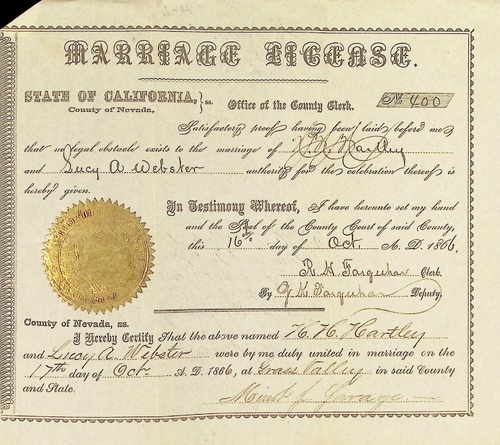 MARRIAGE LICENSE.
STATE OF CALIFORNIA, } ss. Office of the County Clerk. No 400
County of Nevada.
Satisfactory proof having been laid before me
that no legal obstacle exists to the marriage of H. H. Hartley
and Lucy A Webster authority for the celebration thereof is
hereby given.
In Testimony Whereof, I have hereunto set my hand
and the Seal of the County Court of said County,
this 16th day of Oct. A. D. 1866.
R. H. Farquhar Clerk.
By J K Farquhar Deputy.
County of Nevada, ss.
I Hereby Certify That the above named H. H. Hartley
and Lucy A. Webster were by me duly united in marriage on the
17th day of Oct. A. D. 1866, at Grass Valley in said County
and State.